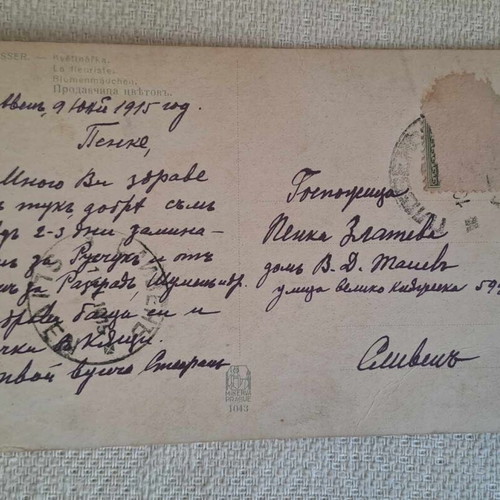 SSER. — Květinářka.
La fleuriste.
Blumenmädchen.
Продавчица цвѣтокъ.
9 юний 1915 год.
Пенке,
Много Ви здраве
тукъ добрѣ съмъ
2-3 дни замина-
за Русчукъ и отъ
за Разградъ, Шуменъ и др.
баща си и
в Кащи.
твой вуйчо Стефанъ
Госпожица
Пенка Златева
домъ В. Д. Ташевъ
улица Велико Княжеска 59
Сливенъ
СЛИВЕНЪ
MINERVA
PRAGUE
1043